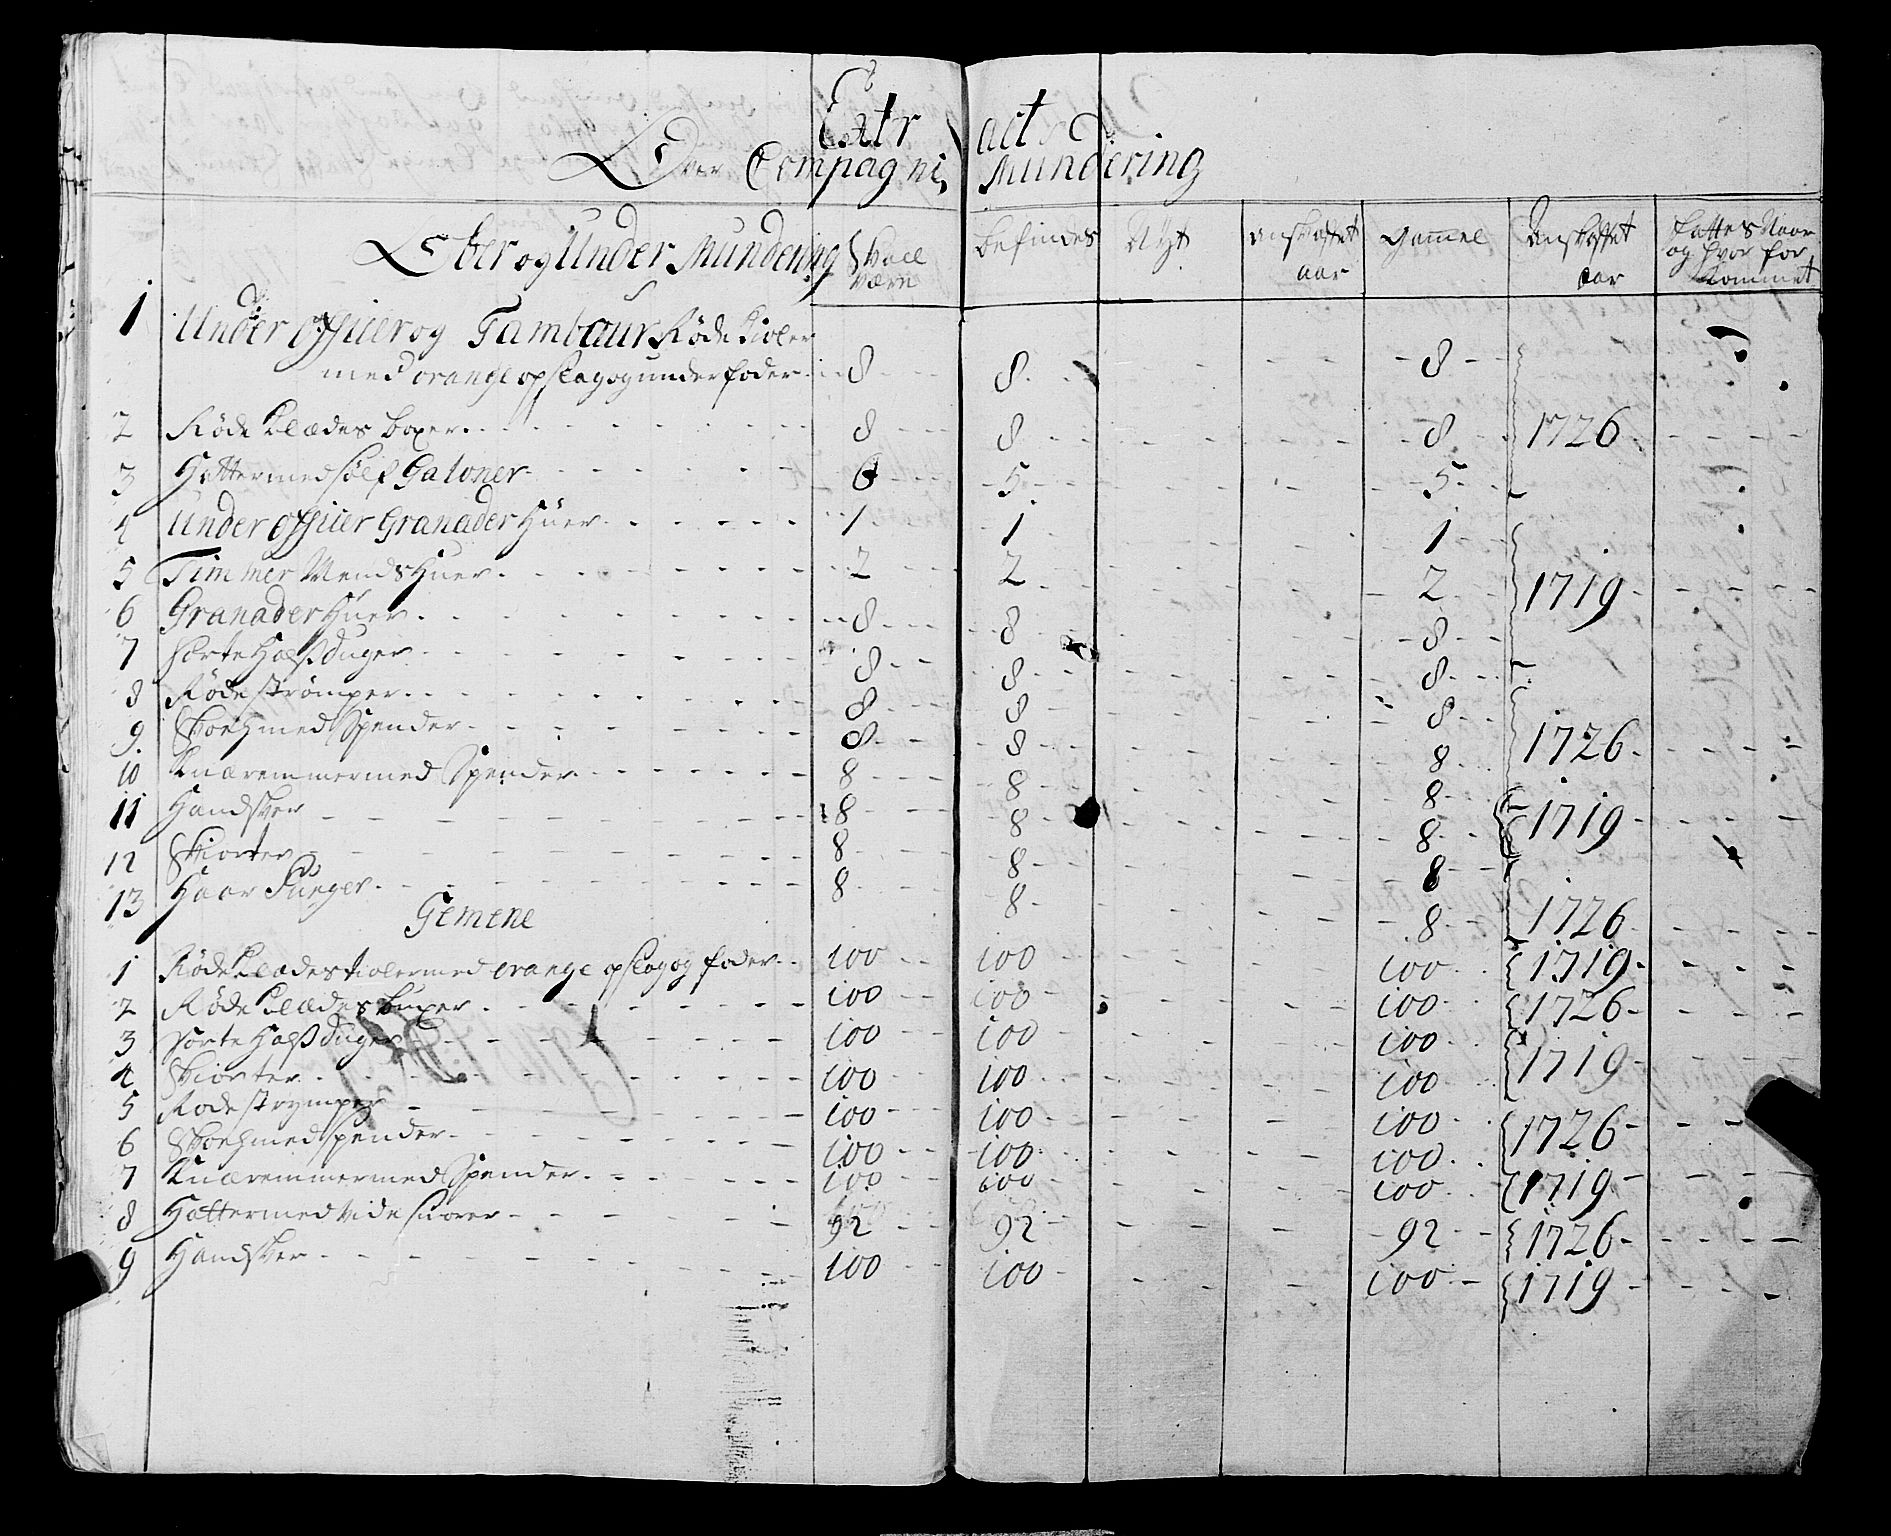 Extract
Over Compagni, Mundering
Ober og Under Mundering | Skall være | befindes | Nÿt | anskaffet aar | gammel | anskaffet aar | fattes Naar og hvor for kommet
1 Under officer og Tambour Røde Kioler
med orange opslag og underfoder 8 8 8
2 Røde Klædes boxer 8 8 8 1726
3 Hatter med sölf Galoner 6 5 5
4 Under officer Granader Huer 1 1 1
5 Timmer Mends Huer 2 2 2 1719
6 Granader Huer 8 8 8
7 sorte Halsduger 8 8 8
8 Røde strømper 8 8 8
9 Skoe med Spender 8 8 8 1726
10 Knæremmer med Spender 8 8 8
11 Handsker 8 8 8 1719
12 Skiorter 8 8 8
13 Haar Punger 8 8 8 1726
Gemene
1 Røde Klædes kioler med orange opslag og foder 100 100 100 1719
2 Røde Klædes buxer 100 100 100 1726
3 sorte Halsduger 100 100 100
4 Skiorter 100 100 100 1719
5 Rode strymper 100 100 100
6 Skoe med spender 100 100 100 1726
7 Knæremmer med Spender 100 100 100 1719
8 Hatter med vide snorer 92 92 92 1726
9 Handsker 100 100 100 1719